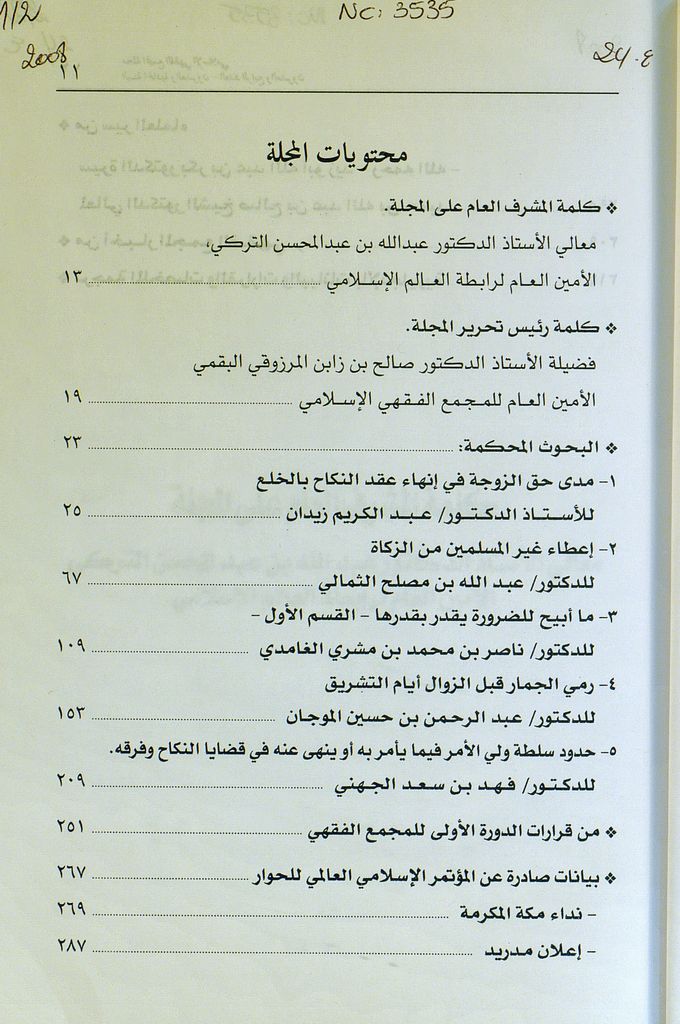 1/2
NC: 3535
2008
24.ع
١١
محتويات المجلة
❖ كلمة المشرف العام على المجلة.
معالي الأستاذ الدكتور عبدالله بن عبدالمحسن التركي،
الأمين العـام لرابطة العالـم الإسـلامي ........ ١٣
❖ كلمة رئيس تحرير المجلة.
فضيلة الأستاذ الدكتور صالح بن زابن المرزوقي البقمي
الأمين العـام للمـجمع الفـقهي الإسـلامي ........ ١٩
❖ البحوث المحكمة: ........ ٢٣
١- مدى حق الزوجة في إنهاء عقد النكاح بالخلع
للأسـتـاذ الدكـتـور/ عـبـد الكريم زيـدان ........ ٢٥
٢- إعطاء غير المسلمين من الزكاة
للدكتور/ عبد الله بن مصلح الثمالي ........ ٦٧
٣- ما أبيح للضرورة يقدر بقدرها - القسم الأول -
للدكتور/ ناصر بن محمد بن مشري الغامدي ........ ١٠٩
٤- رمي الجمار قبل الزوال أيام التشريق
للدكتـور/ عبد الرحمن بن حسين الموجـان ........ ١٥٣
٥- حدود سلطة ولي الأمر فيما يأمر به أو ينهى عنه في قضايا النكاح وفرقه.
للدكـتـور/ فـهـد بن سـعـد الجـهـني ........ ٢٠٩
❖ من قرارات الدورة الأولى للمجمع الفقهي ........ ٢٥١
❖ بيانات صادرة عن المؤتمر الإسلامي العالمي للحوار ........ ٢٦٧
- نداء مكة المكرمة ........ ٢٦٩
- إعلان مدريد ........ ٢٨٧